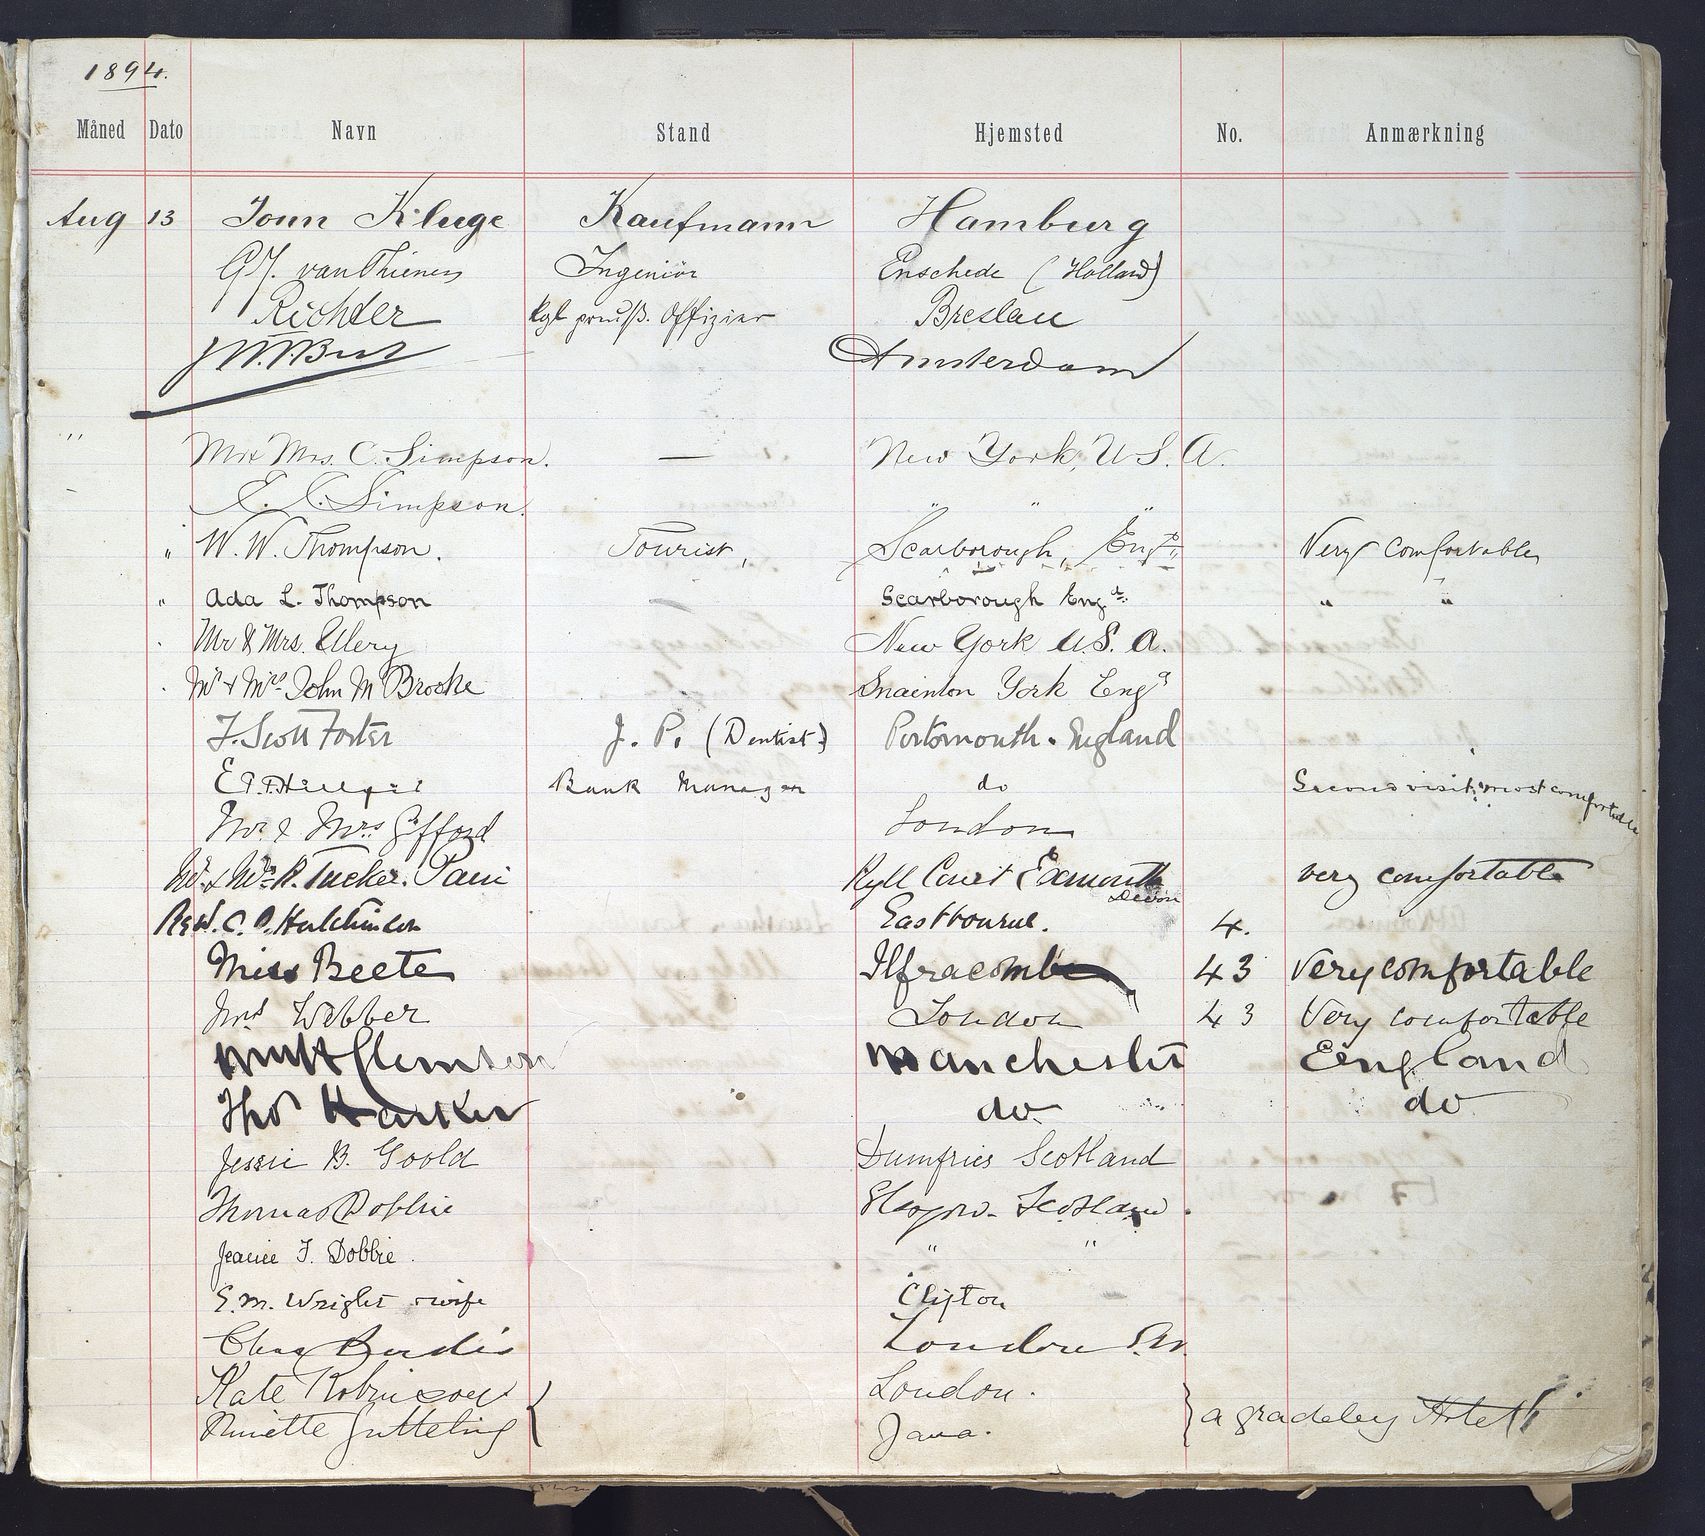 1894.
Måned Dato Navn Stand Hjemsted No. Anmærkning
Aug 13 John Kluge Kaufmann Hamburg
G.J. van Thienen Ingeniör Enschede (Holland)
Richter Kgl preuß. Offizier Breslau
Amsterdam
" Mr & Mrs. C. Simpson. — New York, U.S.A.
E. C. Simpson. " " "
" W. W. Thompson. Tourist, Scarborough, Engd. Very comfortable
" Ada L. Thompson — Scarborough Engd. " "
Mr & Mrs. Ullery New York U.S.A.
Mr & Mrs John M Brooke Snainton York Engd
F. Scott Foster J. P. (Dentist.) Portsmouth. England
Bank Manager do Second visit; most comfortable
Mr & Mrs Gifford London
Mr & Mrs R. Tucker. Pain Ryll Court Exmouth Devon very comfortable
Revd. C. P. Hutchinson Eastbourne. 4.
Miss Beete Ilfracombe 43 Very comfortable
Mrs Webber London 43 Very comfortable
Clemson Manchester England
Thos Harker do do
Jessie B. Goold Dumfries Scotland
Thomas Dobbie Glasgow. Scotland.
Jeanie T. Dobbie. " "
E. M. Wright & wife Clifton
Chas London S.W.
Kate Robinson London.
Ninette Gutteling Java. a gradeley Hotel